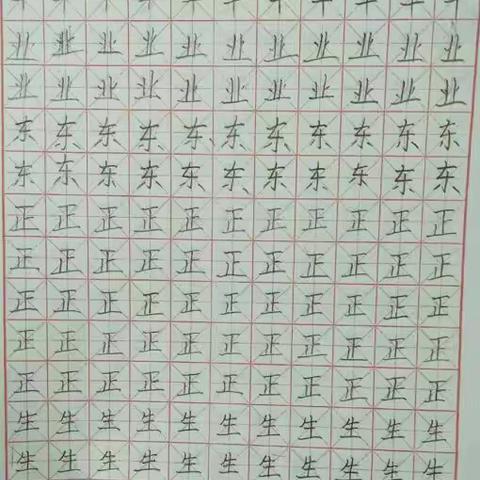 业业业业业业业业业业业
业业业业业业业业业业业
东东东东东东东东东东东
东东东东东东东东东东东
正正正正正正正正正正正
正正正正正正正正正正正
正正正正正正正正正正正
正正正正正正正正正正正
正正正正正正正正正正正
生生生生生生生生生生生
生生生生生生生生生生生